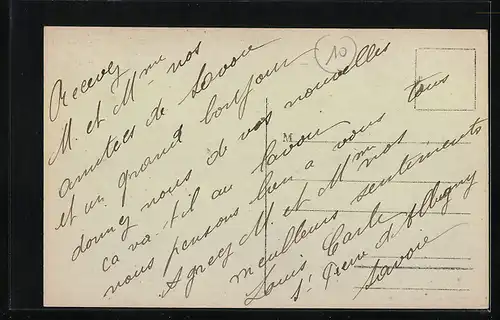 10
M
Recevez
M. et Mme nos
amitées de Savoie
et un grand bonjour
donnez nous de vos nouvelles
ca va-t-il au Savoie
nous pensons bien a vous tous
Agreez M. et Mme nos
meulleurs sentiments
Louis Carle
St Pierre d'Albigny
Savoie